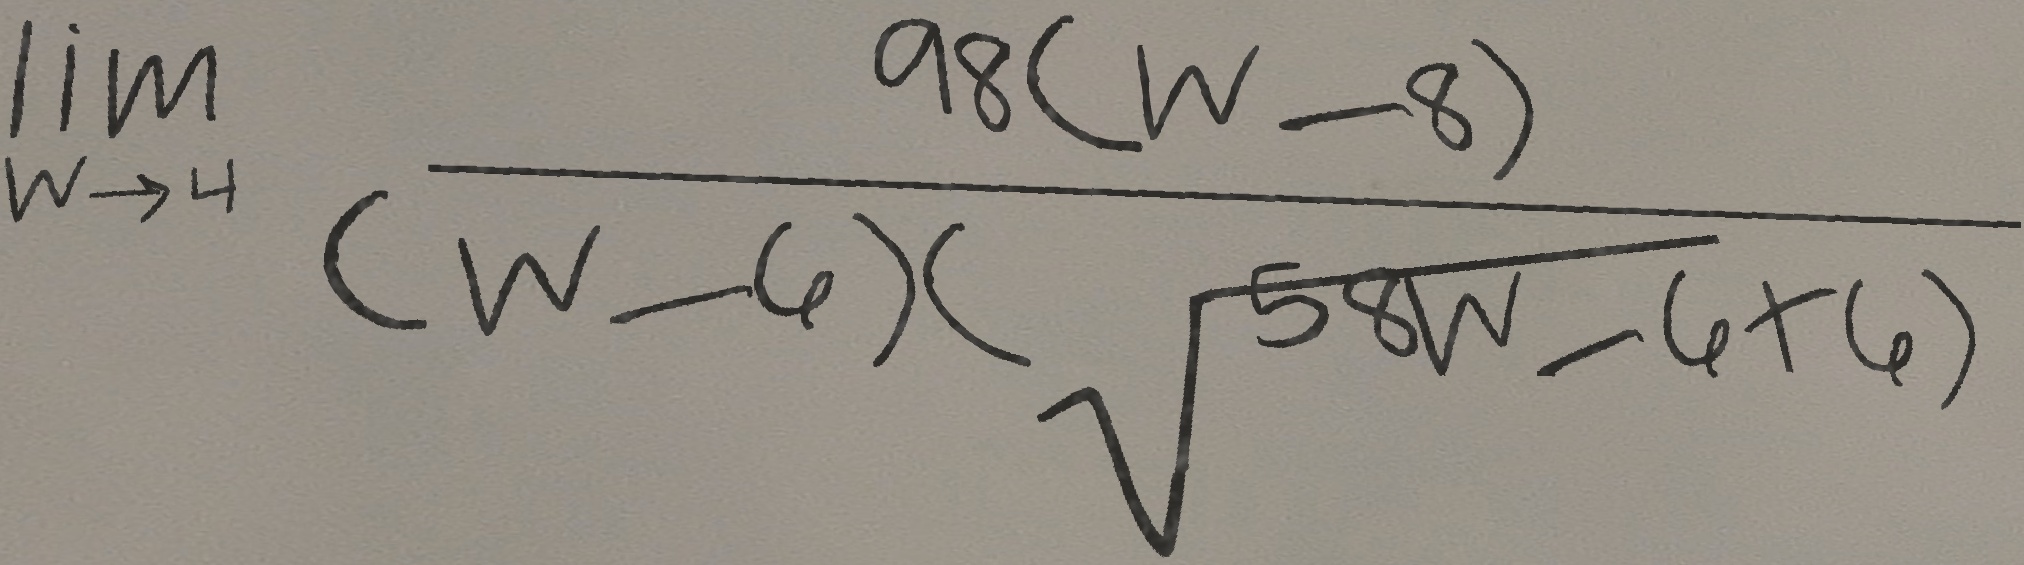 \lim_{w \to 4} \frac{98(w-8)}{(w-6)(\sqrt{58w-6}+6)}